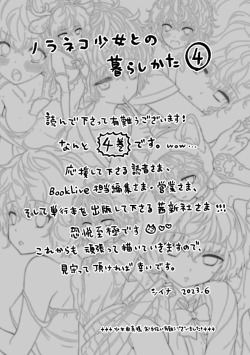 ノラネコ少女との
暮らしかた ④
読んで下さって有難うございます!
なんと 4巻 です。wow...
応援して下さる読者さま、
BookLive 担当編集さま・営業さま、
そして単行本を出版して下さる茜新社さま!!!
恐悦至極です
これからも 頑張って描いていきますので、
見守って頂ければ幸いです。
シイナ 2023.6